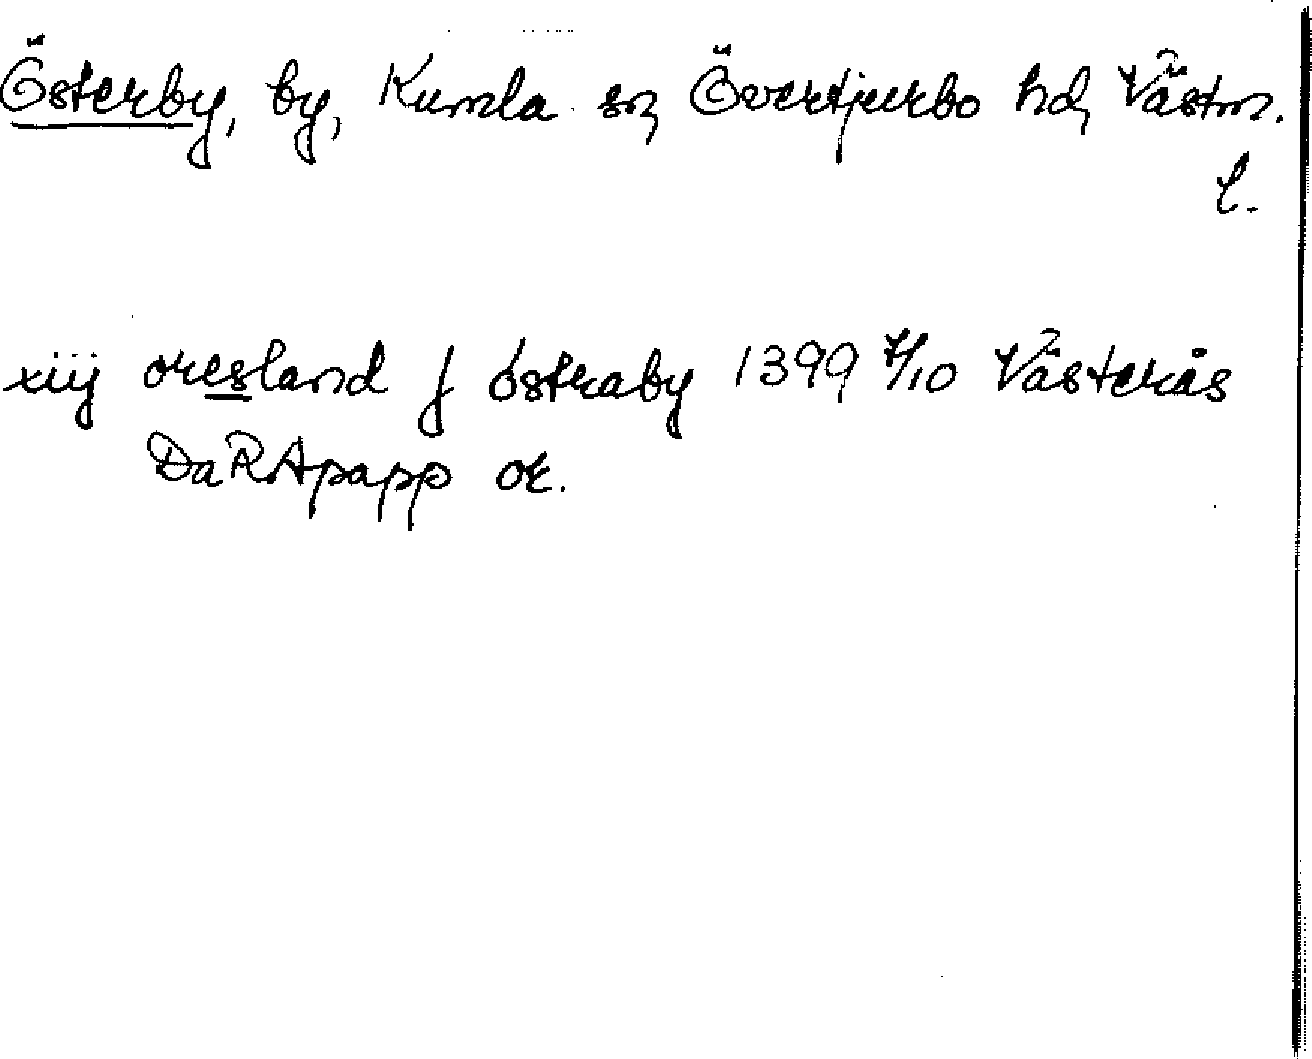 Österby, by, Kumla sn, Övertjurbo hd, Västm.
l.
xiij øresland j østraby 1399 7/10 Västerås
DaRApapp or.